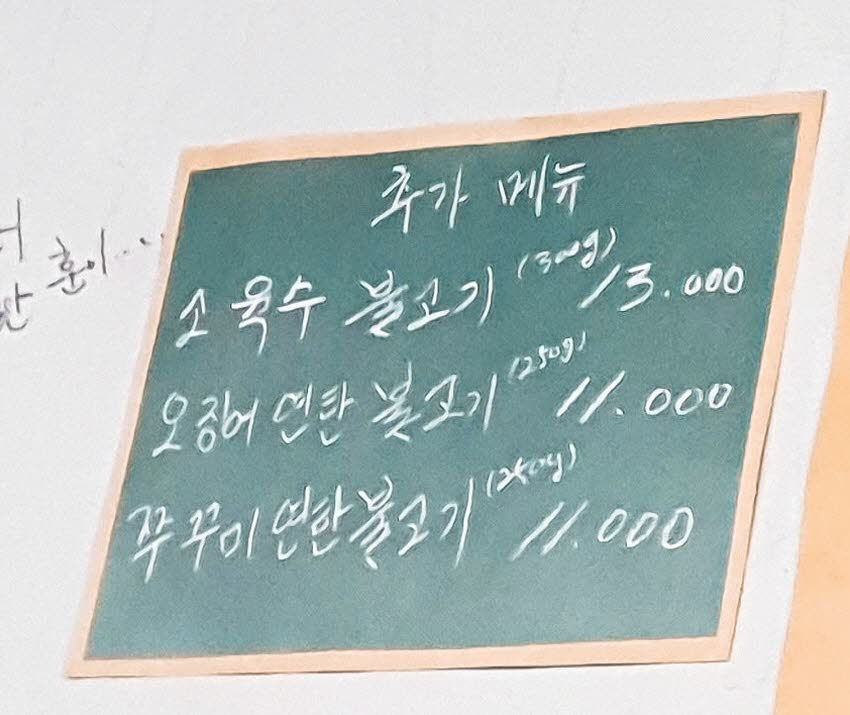 추가 메뉴
소 육수 불고기 (300g) 13.000
오징어 연탄 불고기 (250g) 11.000
쭈꾸미 연탄 불고기 (250g) 11.000
훈이...